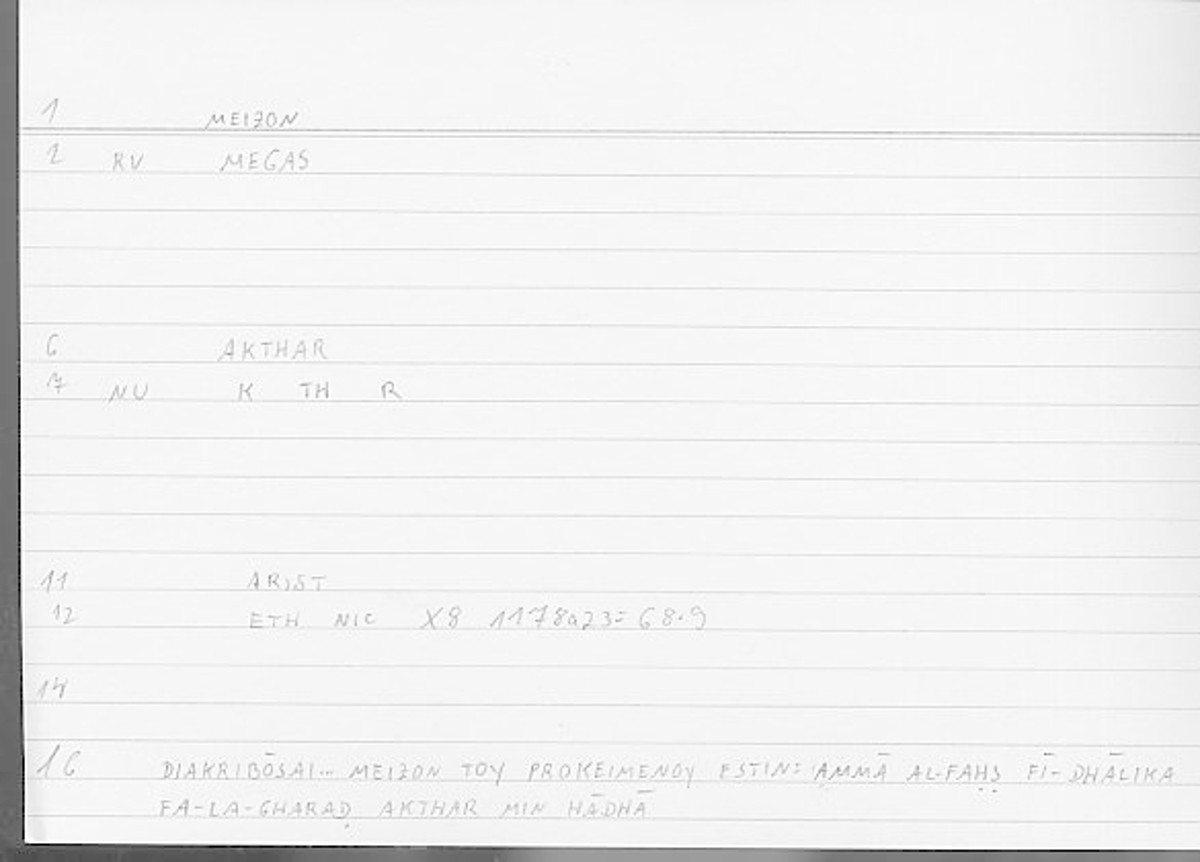 1 MEIZON
2 RV MEGAS
6 AKTHAR
7 NU K TH R
11 ARIST
12 ETH NIC X8 1178a23= 68.9
14
16 DIAKRIBŌSAI... MEIZON TOY PROKEIMENOY ESTIN: AMMĀ AL-FAḤṢ FĪ-DHĀLIKA
FA-LA-GHARAḌ AKTHAR MIN HĀDHĀ